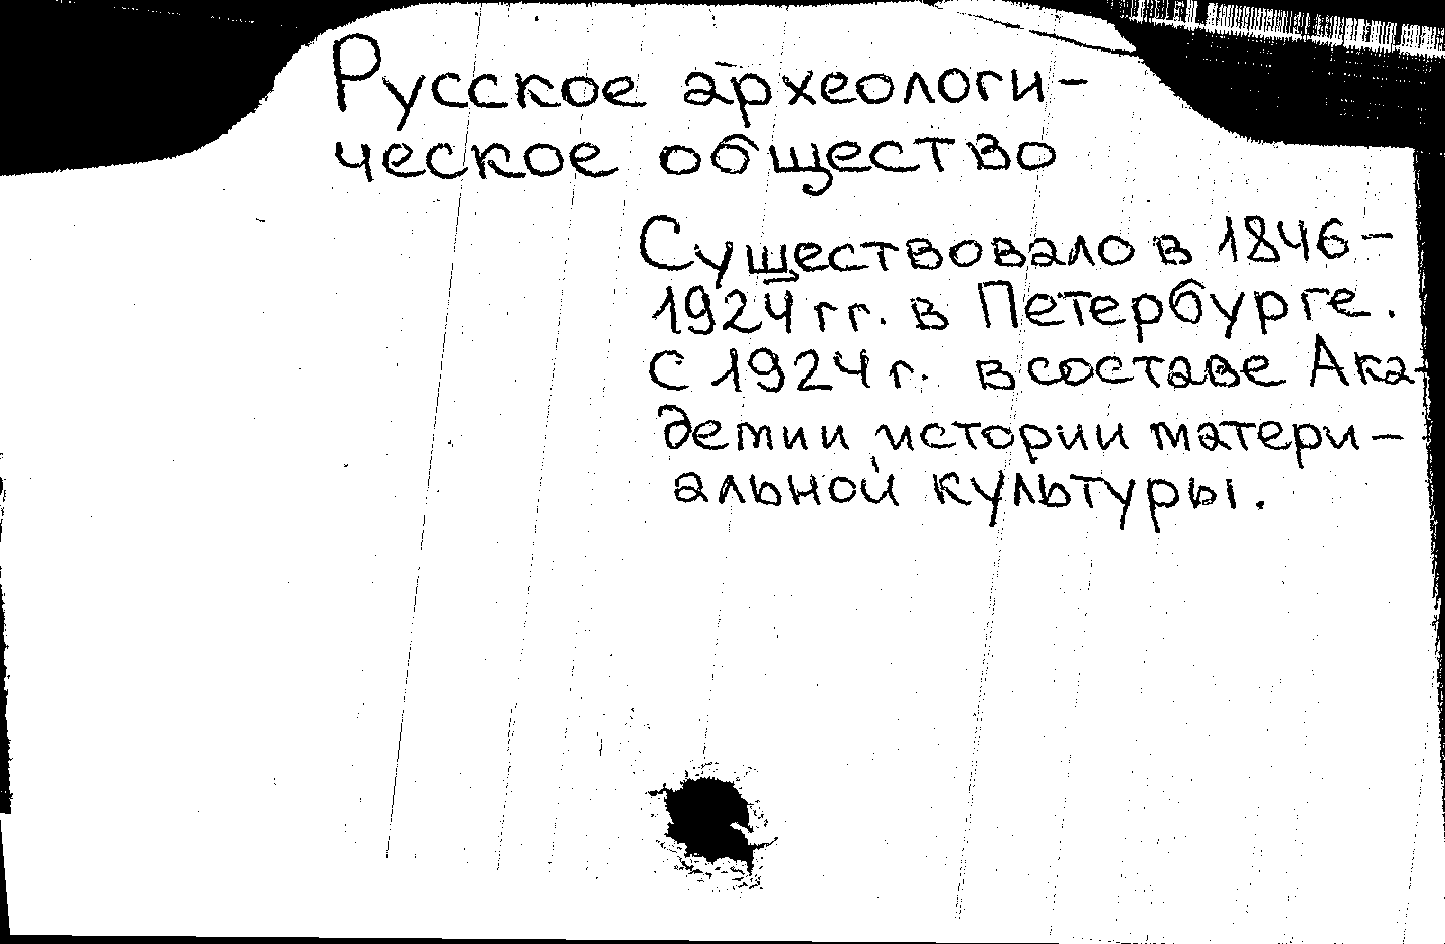 Русское археологи-
ческое общество
Существовало в 1846-
1924 гг. в Петербурге.
С 1924 г. в составе Ака-
демии истории матери-
альной культуры.